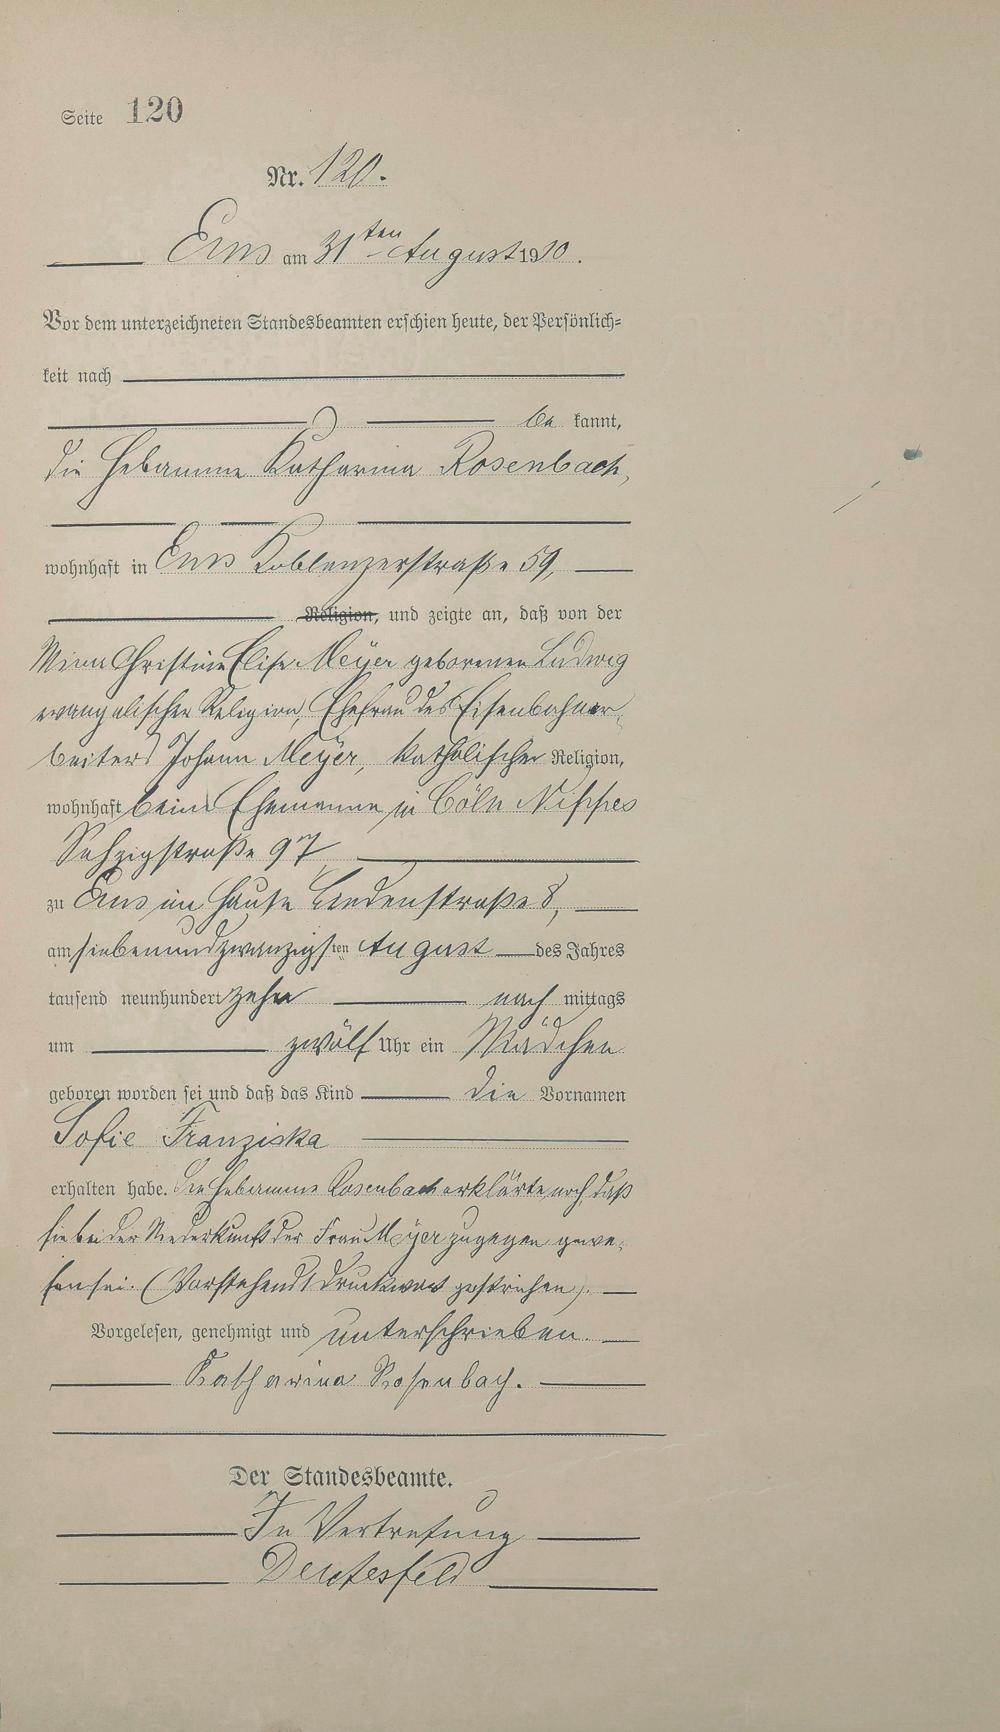 Seite 120
Nr. 120.
Ems am 31ten August 1910.
Vor dem unterzeichneten Standesbeamten erschien heute, der Persönlich=
keit nach
be kannt,
die Hebamme Katharina Rosenbach,
wohnhaft in Ems Koblenzerstraße 59,
Religion, und zeigte an, daß von der
Mina Christine Elise Meyer geborenen Ludwig
evangelischer Religion, Ehefrau des Eisenbahnar-
beiters Johann Meyer, katholischer Religion,
wohnhaft beim Ehemanne in Cöln Nippes
97
zu Ems im Hause Lindenstraße 8,
am siebenundzwanzigsten August des Jahres
tausend neunhundert zehn nach mittags
um zwölf Uhr ein Mädchen
geboren worden sei und daß das Kind die Vornamen
Sofie Franziska
erhalten habe. Die Hebamme Rosenbach erklärte noch, daß
sie bei der Niederkunft der Frau Meyer zugegen gewe-
sen sei. (Vorstehend 1 Druckwort gestrichen).
Vorgelesen, genehmigt und unterschrieben.
Katharina Rosenbach.
Der Standesbeamte.
In Vertretung